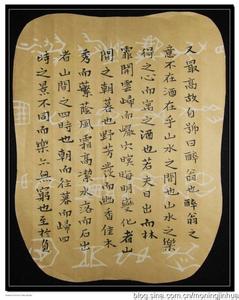 又最高故自號曰醉翁也醉翁之
意不在酒在乎山水之間也山水之樂
得之心而寓之酒也若夫日出而林
霏開雲歸而巖穴暝晦明變化者山
間之朝暮也野芳發而幽香佳木
秀而繁蔭風霜高潔水落而石出
者山間之四時也朝而往暮而歸四
時之景不同而樂亦無窮也至於負
blog.sina.com.cn/moningjinhua